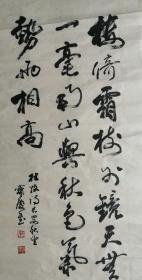 楼倚霜树外镜天无
一毫南山与秋色气
势两相高
杜牧诗长安秋望